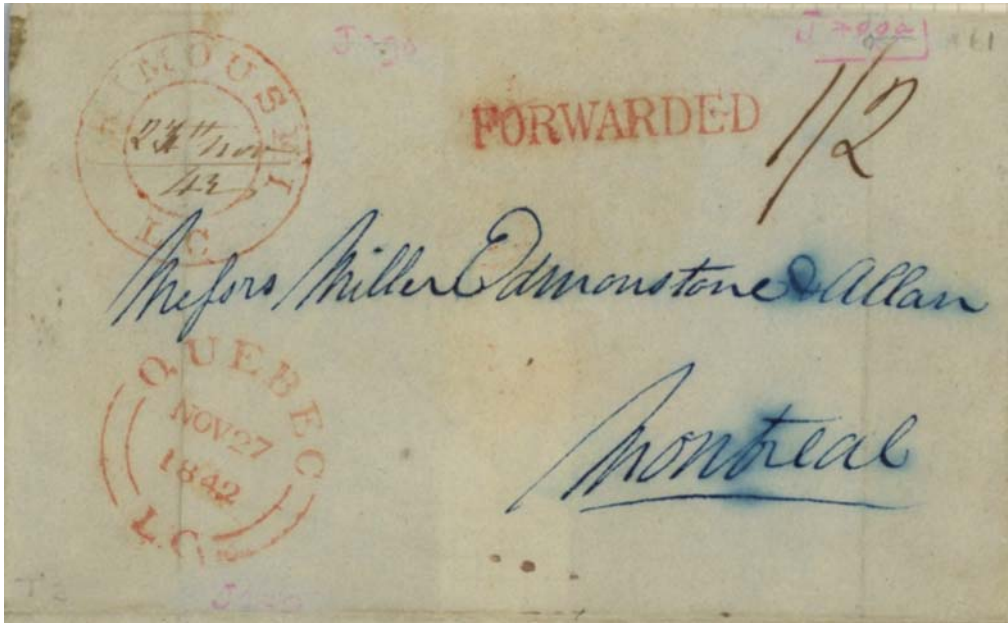 RIMOUSKI
24th Nov
42
L.C
FORWARDED
1/2
Messrs Miller Edmonstone & Allan
Montreal
QUEBEC
NOV 27
1842
L.C.